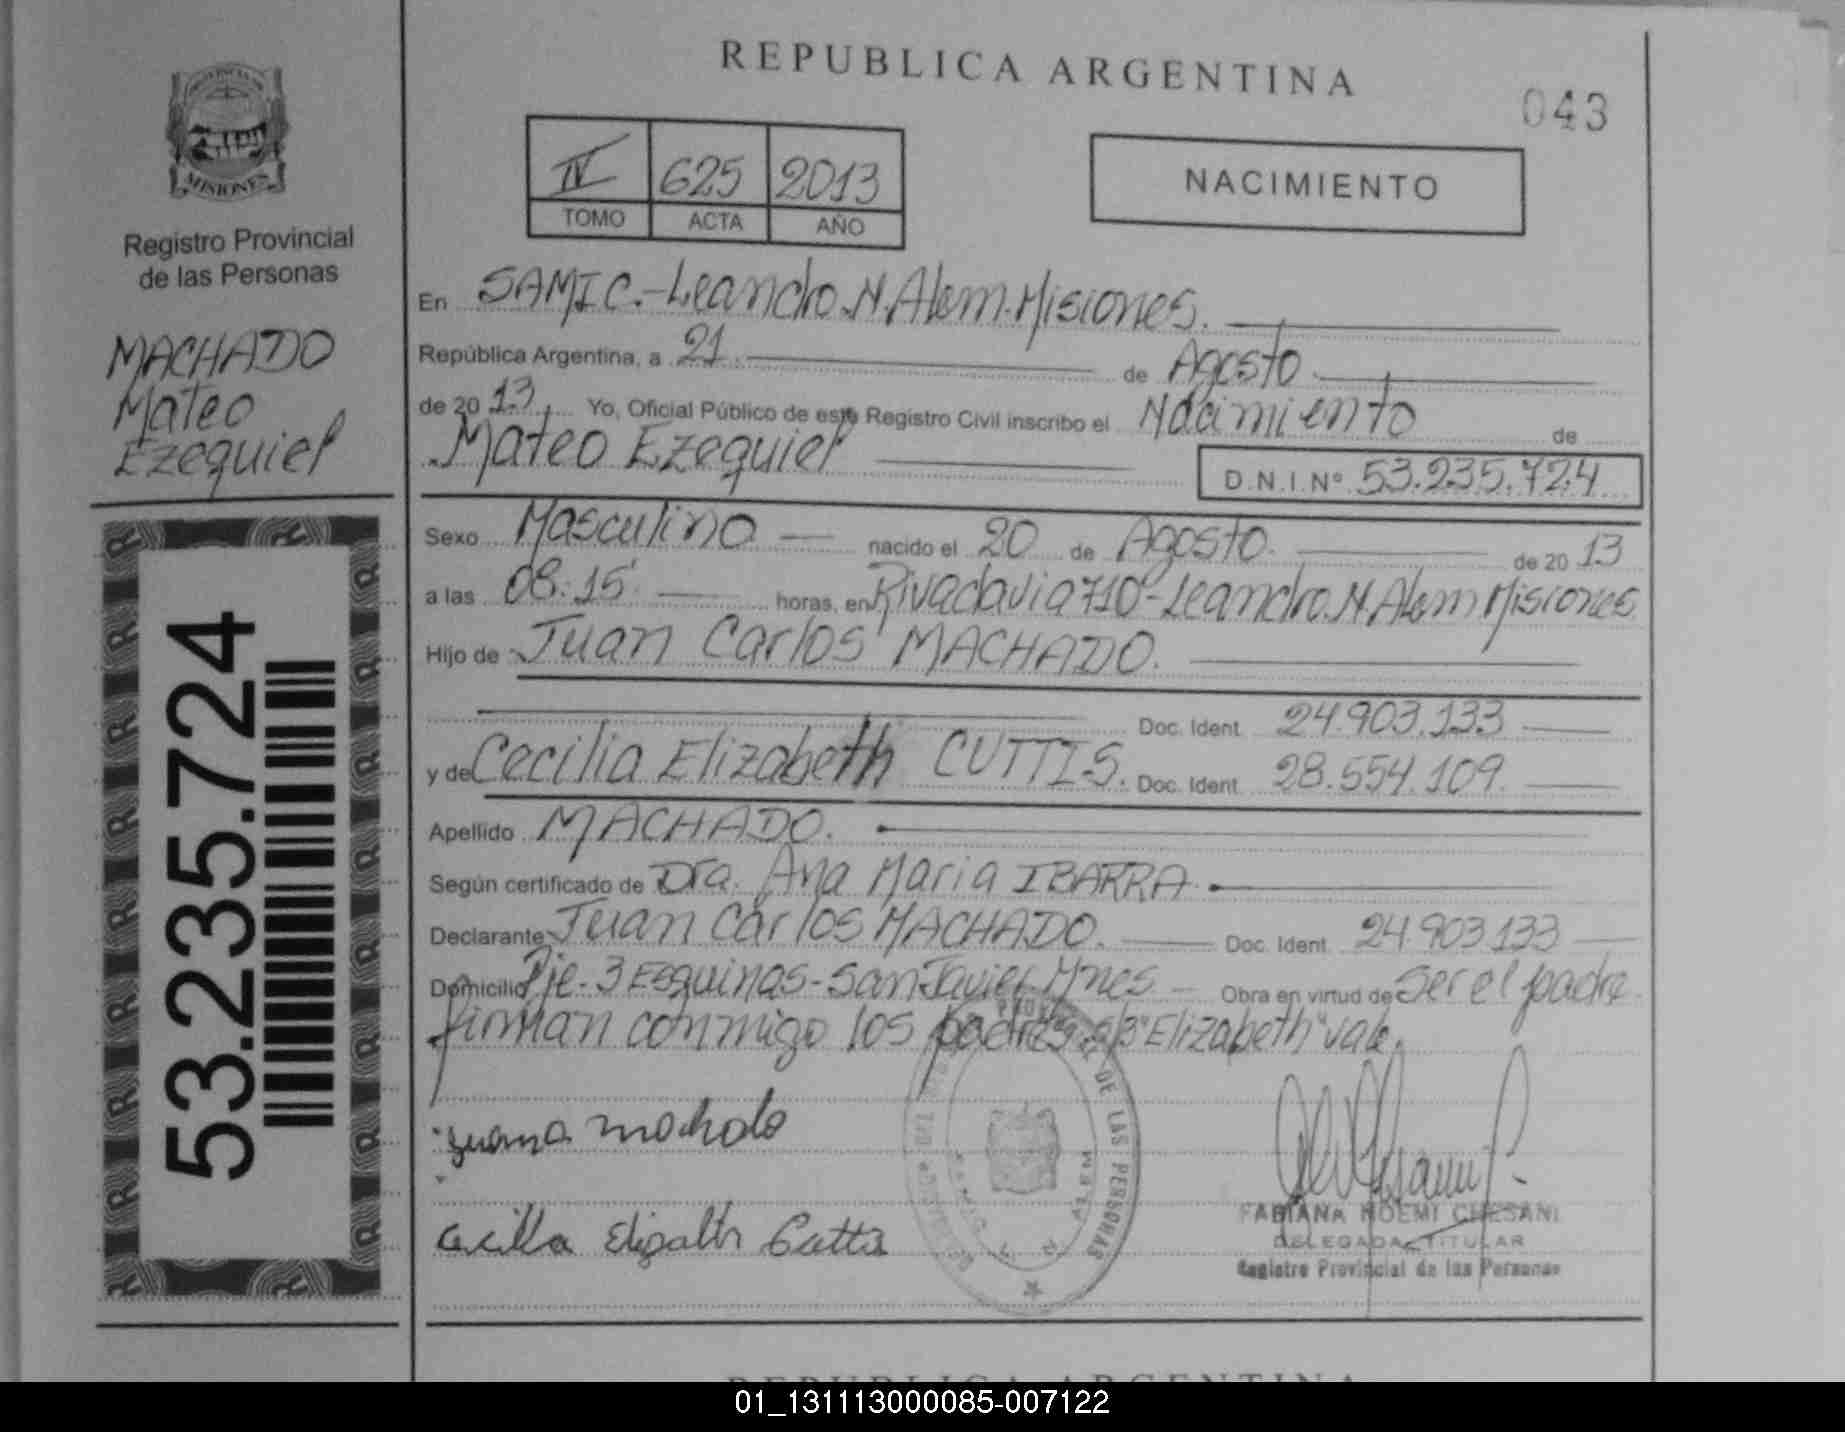 REPUBLICA ARGENTINA
043
PROVINCIA DE
MISIONES
Registro Provincial
de las Personas
MACHADO
Mateo
Ezequiel
53.235.724
IV 625 2013
TOMO ACTA AÑO
NACIMIENTO
En SAMIC.-Leandro.N.Alem.Misiones.
República Argentina, a 21 de Agosto
de 2013 Yo, Oficial Público de este Registro Civil inscribo el Nacimiento de
Mateo Ezequiel D.N.I.Nº 53.235.724
Sexo Masculino nacido el 20 de Agosto. de 2013
a las 08:15 horas, en Rivadavia 710-Leandro.N.Alem Misiones.
Hijo de Juan Carlos MACHADO.
Doc. Ident 24.903.133
y de Cecilia Elizabeth CUTTIS. Doc. Ident 28.554.109.
Apellido MACHADO.
Según certificado de Dra. Ana Maria IBARRA.
Declarante Juan Carlos MACHADO. Doc. Ident. 24.903.133
Domicilio Pje-3 Esquinas-San Javier Mnes Obra en virtud de Ser el padre.
firman conmigo los padres. "Elizabeth" vale.
DE LAS PERSONAS
machado
Cecilia Elizabeth
FABIANA NOEMI CHESANI
DELEGADA TITULAR
Registro Provincial de las Personas
REPUBLICA ARGENTINA
01_131113000085-007122